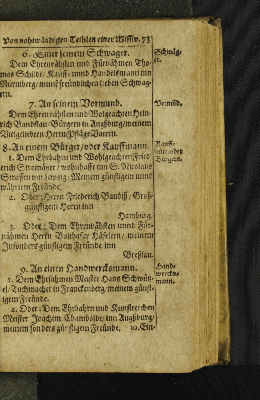 Von nohtwändigen Teihlen einer Missiv. 73
6. Einer seinem Schwager.
Dem Ehrenvästen und Fürnähmen Tho-
mas Schilde/ Kauff- und Handelsmann inn
Nürnberg/ meinē freündlichen lieben Schwa-
gern.
Schwäg-
er.
7. An seinem Vormund.
Dem Ehrenvästen und Wolgeachten Hein-
rich Bandstal/ Bürgern in Augsburg/ meinem
Vielgeliebten Herrn Pfläge Vatern.
Vormünd.
8. An einem Bürger/ oder Kauffmann.
1. Dem Ehrbahrn und Wohlgeachten Fried-
erich Stromäyer/ wohnhafft inn S. Nicolaus
Strassen von Leipzig/ Meinem günstigen unnd
währtem Freünde.
Kauff-
leüte oder
Bürgern.
2. Oder: Herrn Friederich Baudiß/ Groß-
günstigem Herrn inn
Hamburg.
3. Oder: Dem Ehrenvästen unnd Für-
nähmen Herrn Balthasar Häselein/ meinem
Insonders günstigem Freünde/ inn
Breßlau.
9. An einen Handwercksmann.
1. Dem Ehrsahmen Meister Hans Schmüt-
el/ Tuchmacher in Fequckenberg/ meinem günst-
igem Freünde.
Hand-
wercks-
mann.
2. Oder: Dem Ehrbahrn und Kunstreichen
Meister Joachim Chambalde/ inn Augßburg/
meinem sonders günstigem Freünde.
10. Ein-